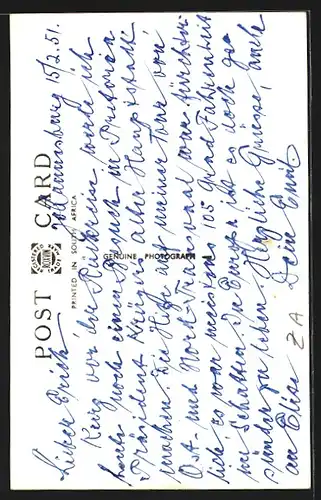 POST CARD
PRINTED IN SOUTH AFRICA
GENUINE PHOTOGRAPH
Johannesburg 15/2.51.
Lieber Erich
Kurz vor der Rückreise werde ich
noch einen Besuch in Pretoria
Präsident Krügers alte Hauptstadt
machen. Die Hitze auf meiner Tour von
Ost- und Nord-Transvaal war fürchter-
lich, es war meistens 105 Grad Fahrenheit
im Schatten. In Europa ist es doch ge-
sünder zu leben. Herzliche Grüsse, auch
an Elise Deine
ZA